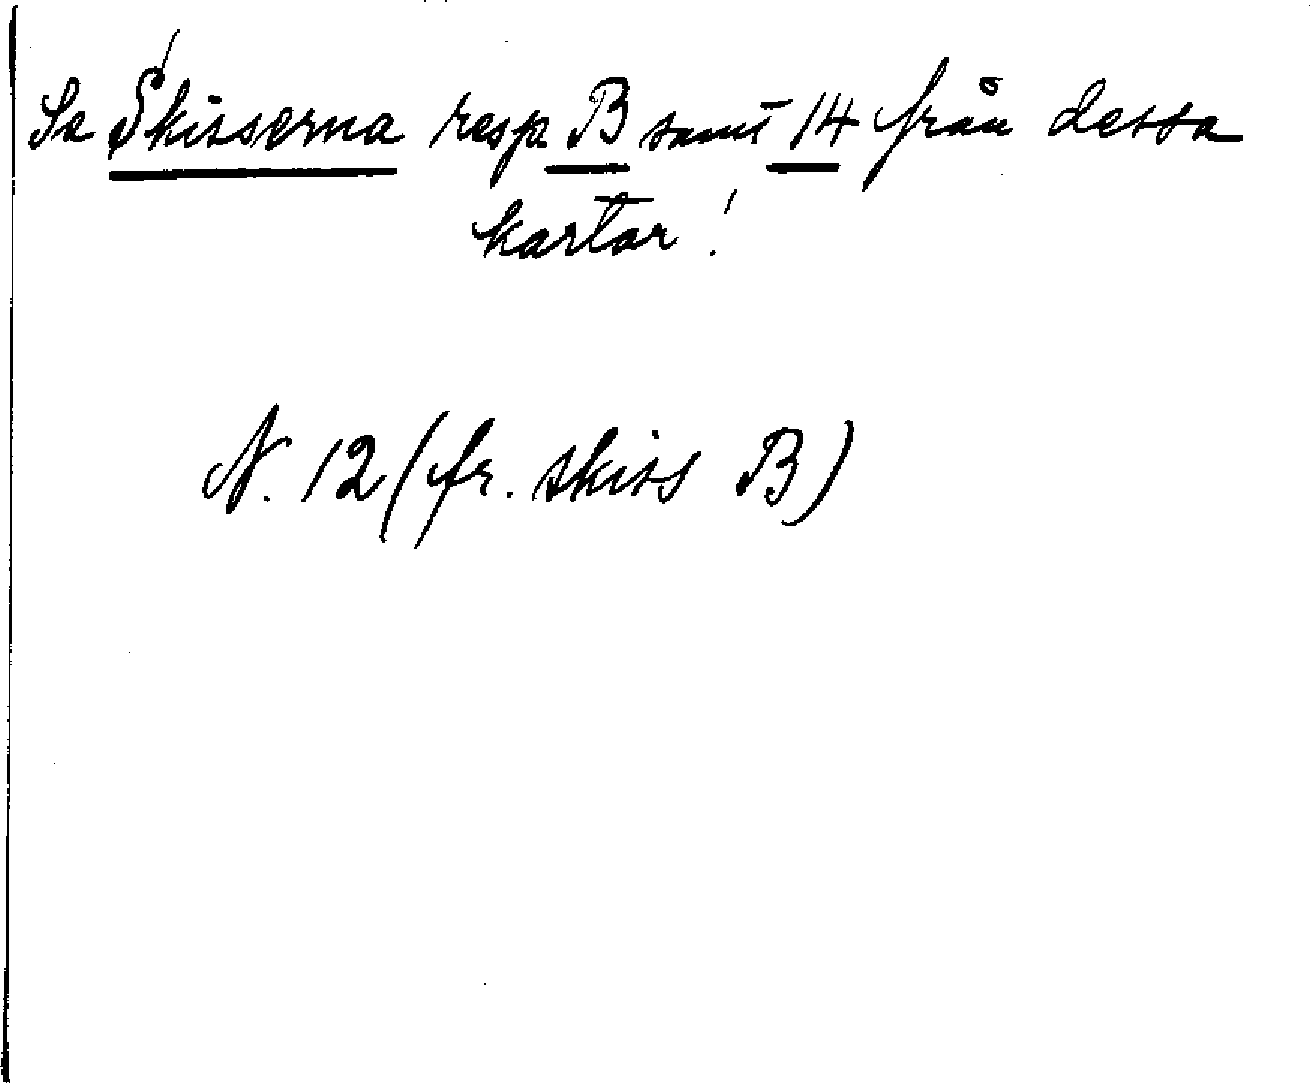 Se Skisserna resp. B samt 14 från dessa
kartor!
N. 12 (fr. skiss B)